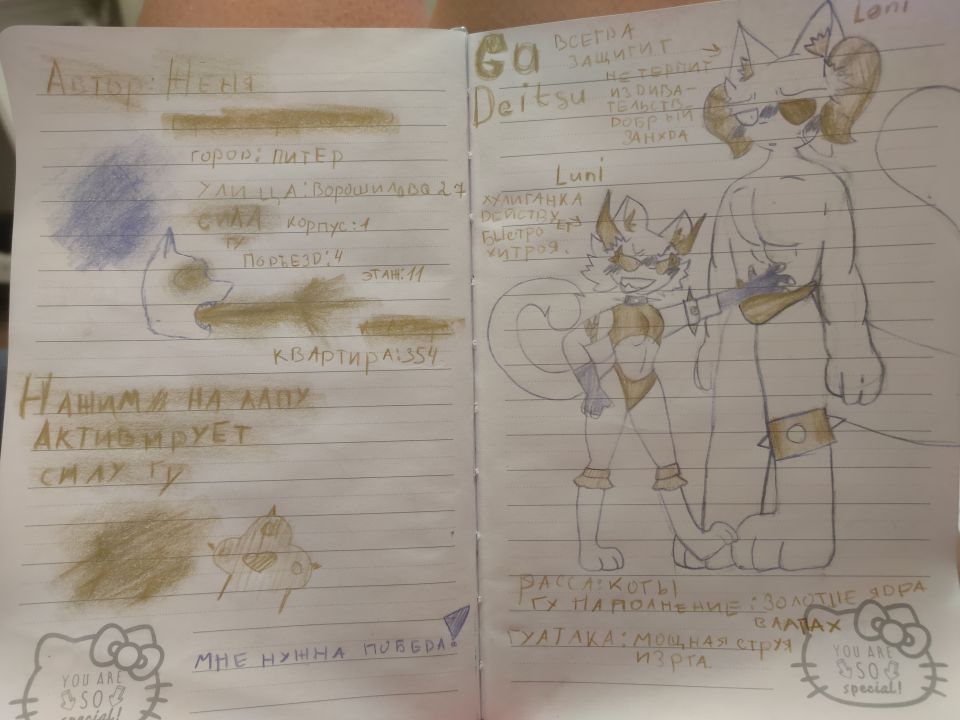 Автор: Женя
город: Питер
улица: Ворошилова 27
сила
гу
корпус: 1
подъезд: 4
этаж: 11
квартира: 354
Нажимя на лапу
активирует
силу гу
мне нужна победа!
YOU ARE
SO
special!
Gu
Deitsu
всегда
защитит
не терпит
издива-
тельств
добрый
Loni
Luni
хулиганка
действу
ет
быстро
хитроя.
расса: коты
гу наполнение: золотые ядра
в лапах
гуатака: мощная струя
из рта.
YOU ARE
SO
special!